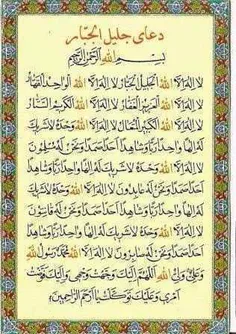 دعای جلیل الجبّار
بِسْمِ اللهِ الرَّحْمنِ الرَّحیمِ
لا اِلهَ اِلاَّ اللهُ الْجَلیلُ الْجَبّارُ لا اِلهَ اِلاَّ اللهُ الْواحِدُ الْقَهّارُ
لا اِلهَ اِلاَّ اللهُ الْعَزیزُ الْغَفّارُ لا اِلهَ اِلاَّ اللهُ الْکَریمُ السَّتّارُ
لا اِلهَ اِلاَّ اللهُ الْکَبیرُ الْمُتَعالُ لا اِلهَ اِلاَّ اللهُ وَحْدَهُ لا شَریکَ
لَهُ اِلهاً واحِداً رَبّاً وَشاهِداً اَحَداً صَمَداً وَنَحْنُ لَهُ مُسْلِمُونَ
لا اِلهَ اِلاَّ اللهُ وَحْدَهُ لا شَریکَ لَهُ اِلهاً واحِداً رَبّاً وَشاهِداً
اَحَداً صَمَداً وَنَحْنُ لَهُ عابِدُونَ لا اِلهَ اِلاَّ اللهُ وَحْدَهُ لا شَریکَ
لَهُ اِلهاً واحِداً رَبّاً وَشاهِداً اَحَداً صَمَداً وَنَحْنُ لَهُ قانِتُونَ
لا اِلهَ اِلاَّ اللهُ وَحْدَهُ لا شَریکَ لَهُ اِلهاً واحِداً رَبّاً وَشاهِداً
اَحَداً صَمَداً وَنَحْنُ لَهُ صابِرُونَ لا اِلهَ اِلاَّ اللهُ مُحَمَّدٌ رَسُولُ اللهِ
وَعَلِیٌّ وَلِیُّ اللهِ اَللّهُمَّ اِلَیْکَ وَجَّهْتُ وَجْهی وَاِلَیْکَ فَوَّضْتُ
اَمْری وَعَلَیْکَ تَوَکَّلْتُ یا اَرْحَمَ الرّاحِمینَ